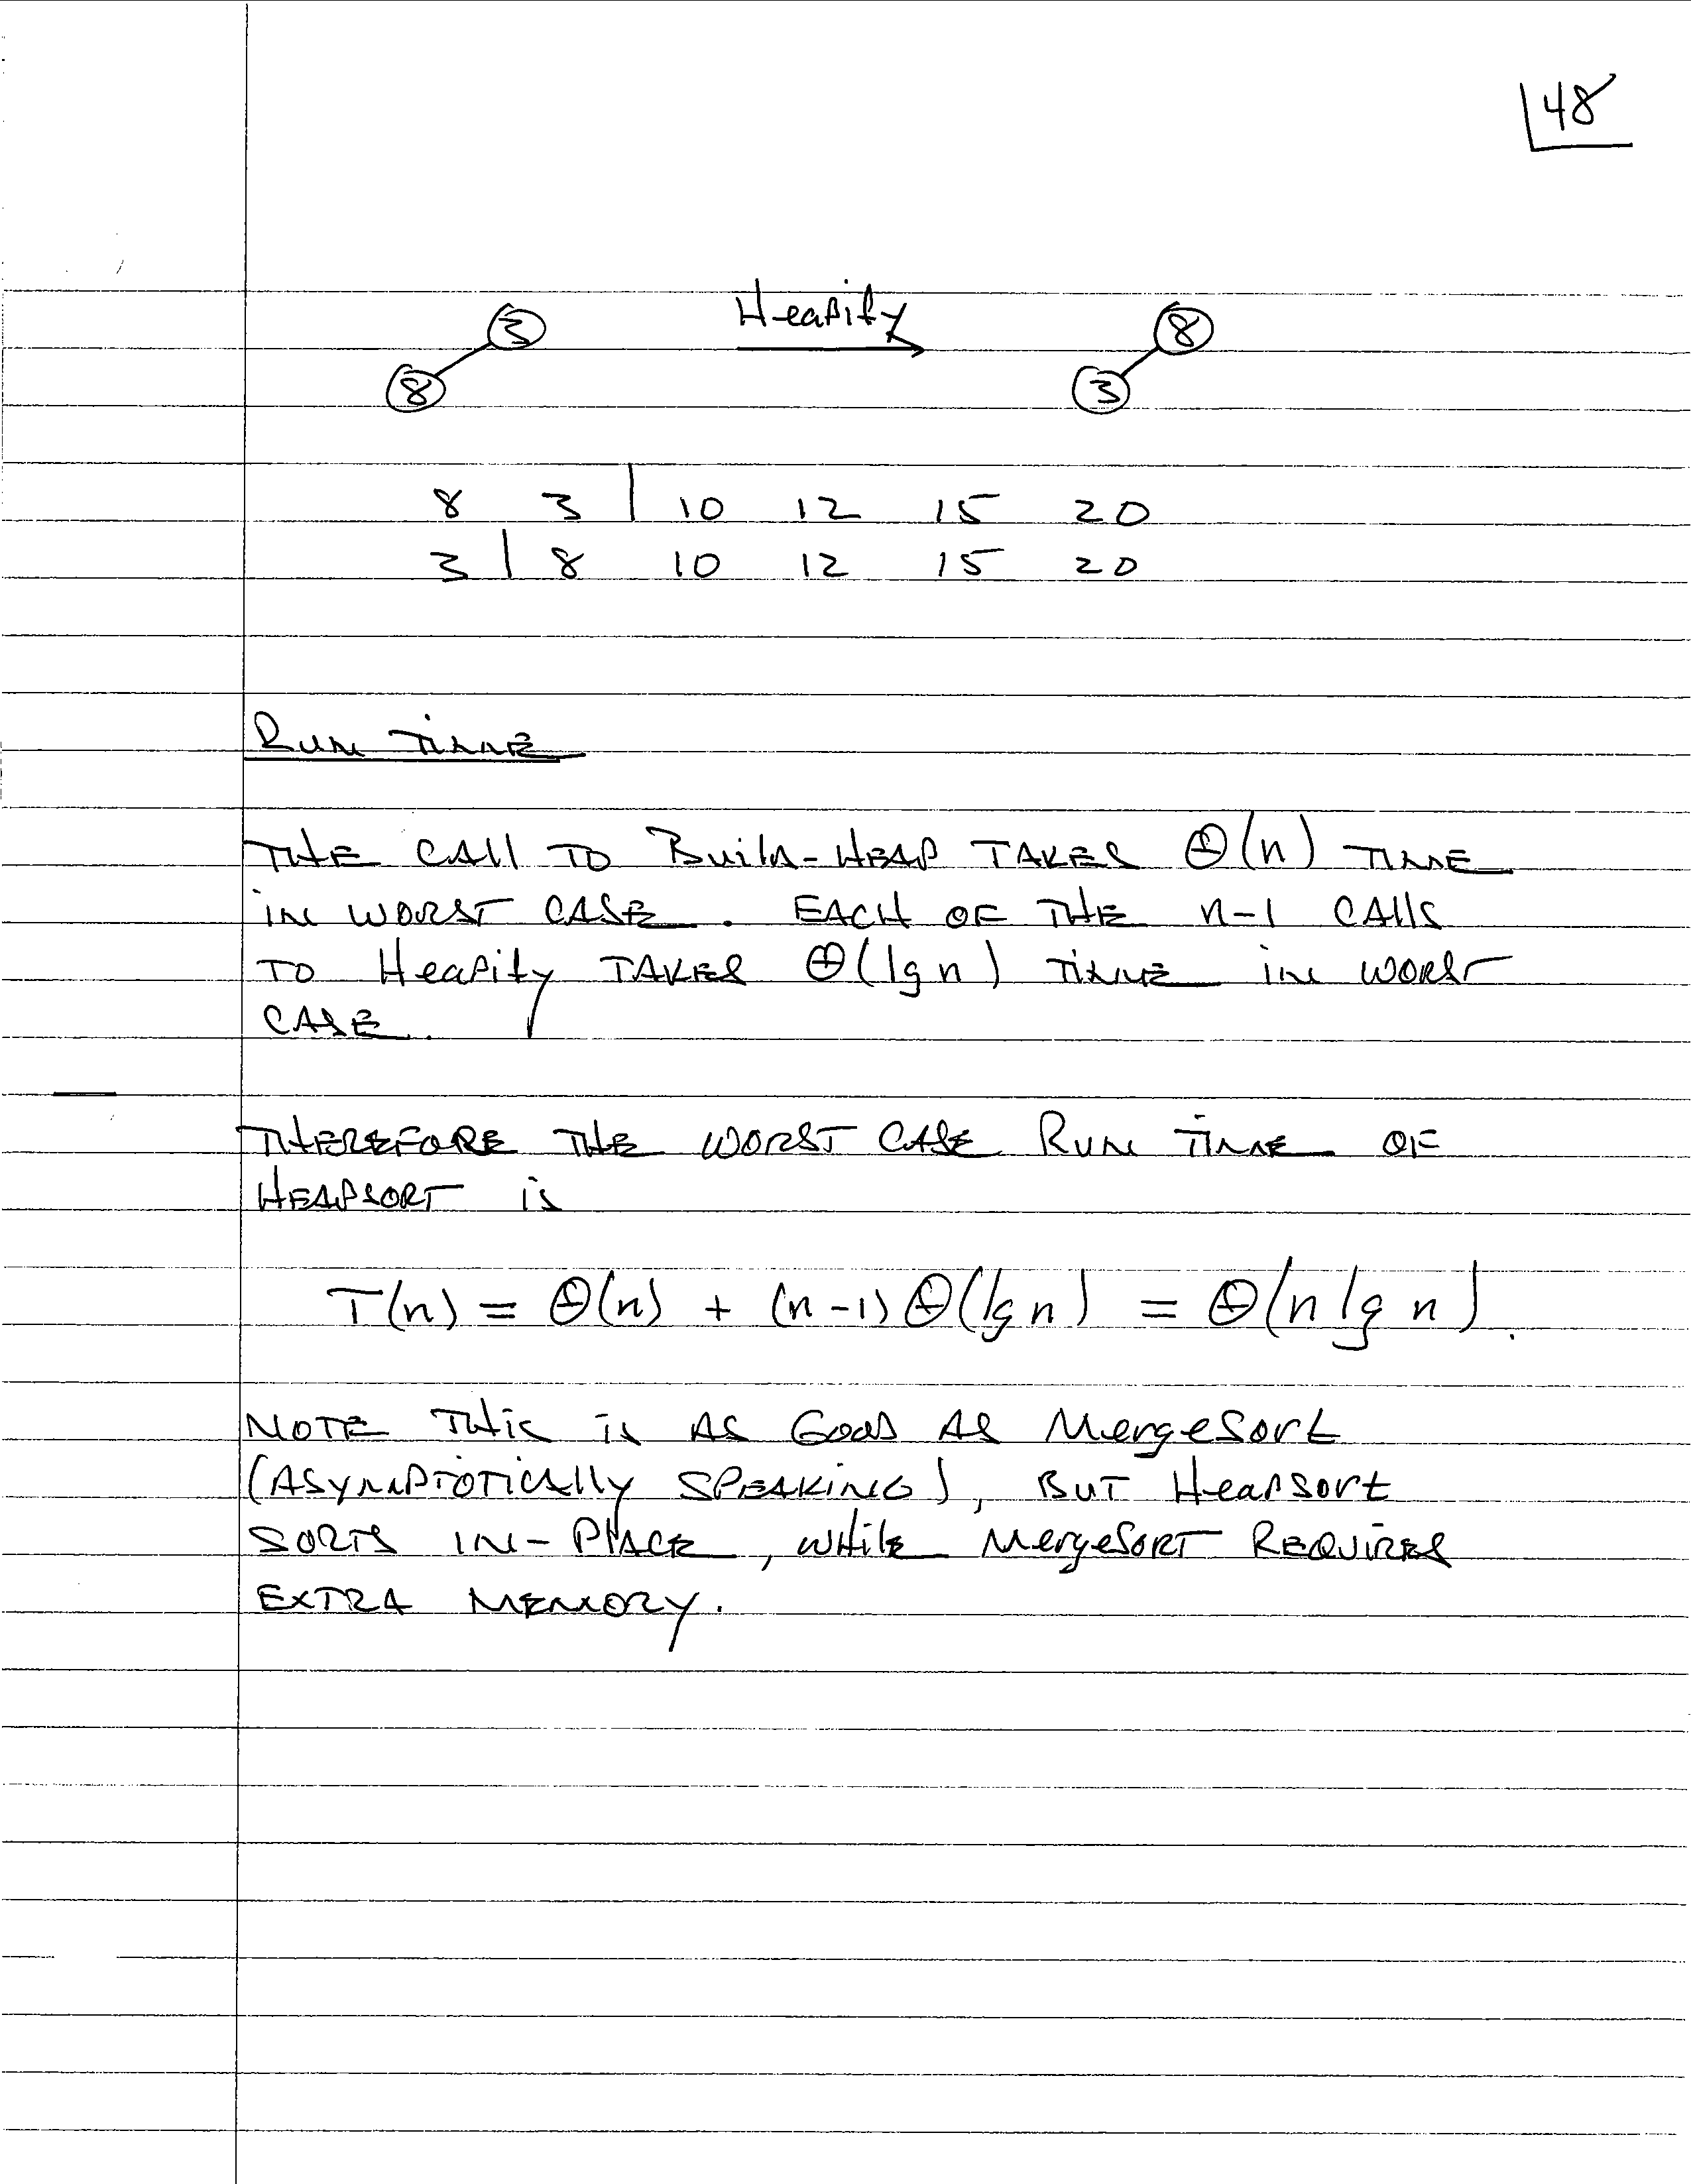 48
Heapify
3 8
8 3
8 3 | 10 12 15 20
3 | 8 10 12 15 20
Run Time
THE CALL TO Build-HEAP TAKES Θ(n) TIME
in WORST CASE. EACH OF THE n-1 CALLS
TO Heapify TAKES Θ(lg n) TIME in WORST
CASE.
THEREFORE THE WORST CASE RUN TIME OF
HEAPSORT is
T(n) = Θ(n) + (n-1) Θ(lg n) = Θ(n lg n).
NOTE THIS is AS GOOD AS MergeSort
(ASYMPTOTICALLY SPEAKING), BUT Heapsort
SORTS IN-PLACE, WHILE MergeSORT REQUIRES
EXTRA MEMORY.